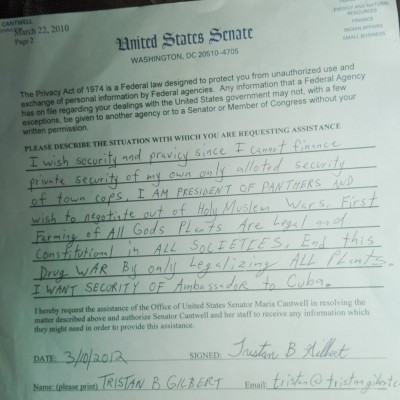 CANTWELL
March 22, 2010
Page 2
ENERGY AND NATURAL
RESOURCES
FINANCE
INDIAN AFFAIRS
SMALL BUSINESS
United States Senate
WASHINGTON, DC 20510-4705
The Privacy Act of 1974 is a Federal law designed to protect you from unauthorized use and
exchange of personal information by Federal agencies. Any information that a Federal Agency
has on file regarding your dealings with the United States government may not, with a few
exceptions, be given to another agency or to a Senator or Member of Congress without your
written permission.
PLEASE DESCRIBE THE SITUATION WITH WHICH YOU ARE REQUESTING ASSISTANCE
I wish security and pravicy since I cannot finance
private security of my own only alloted security
of town cops. I AM PRESIDENT OF PANTHERS AND
wish to negotiate out of Holy Muslem Wars. First
Farming of All Gods Plants Are Legal and
Constitutional in ALL SOCIETEES. End this
Drug WAR By only Legalizing ALL PLants.
I WANT SECURITY OF Ambassador to Cuba.
I hereby request the assistance of the Office of United States Senator Maria Cantwell in resolving the
matter described above and authorize Senator Cantwell and her staff to receive any information which
they might need in order to provide this assistance.
DATE: 3/10/2012 SIGNED: Tristan B Gilbert
Name: (please print) TRISTAN B GILBERT Email: tristan@tristangilbert